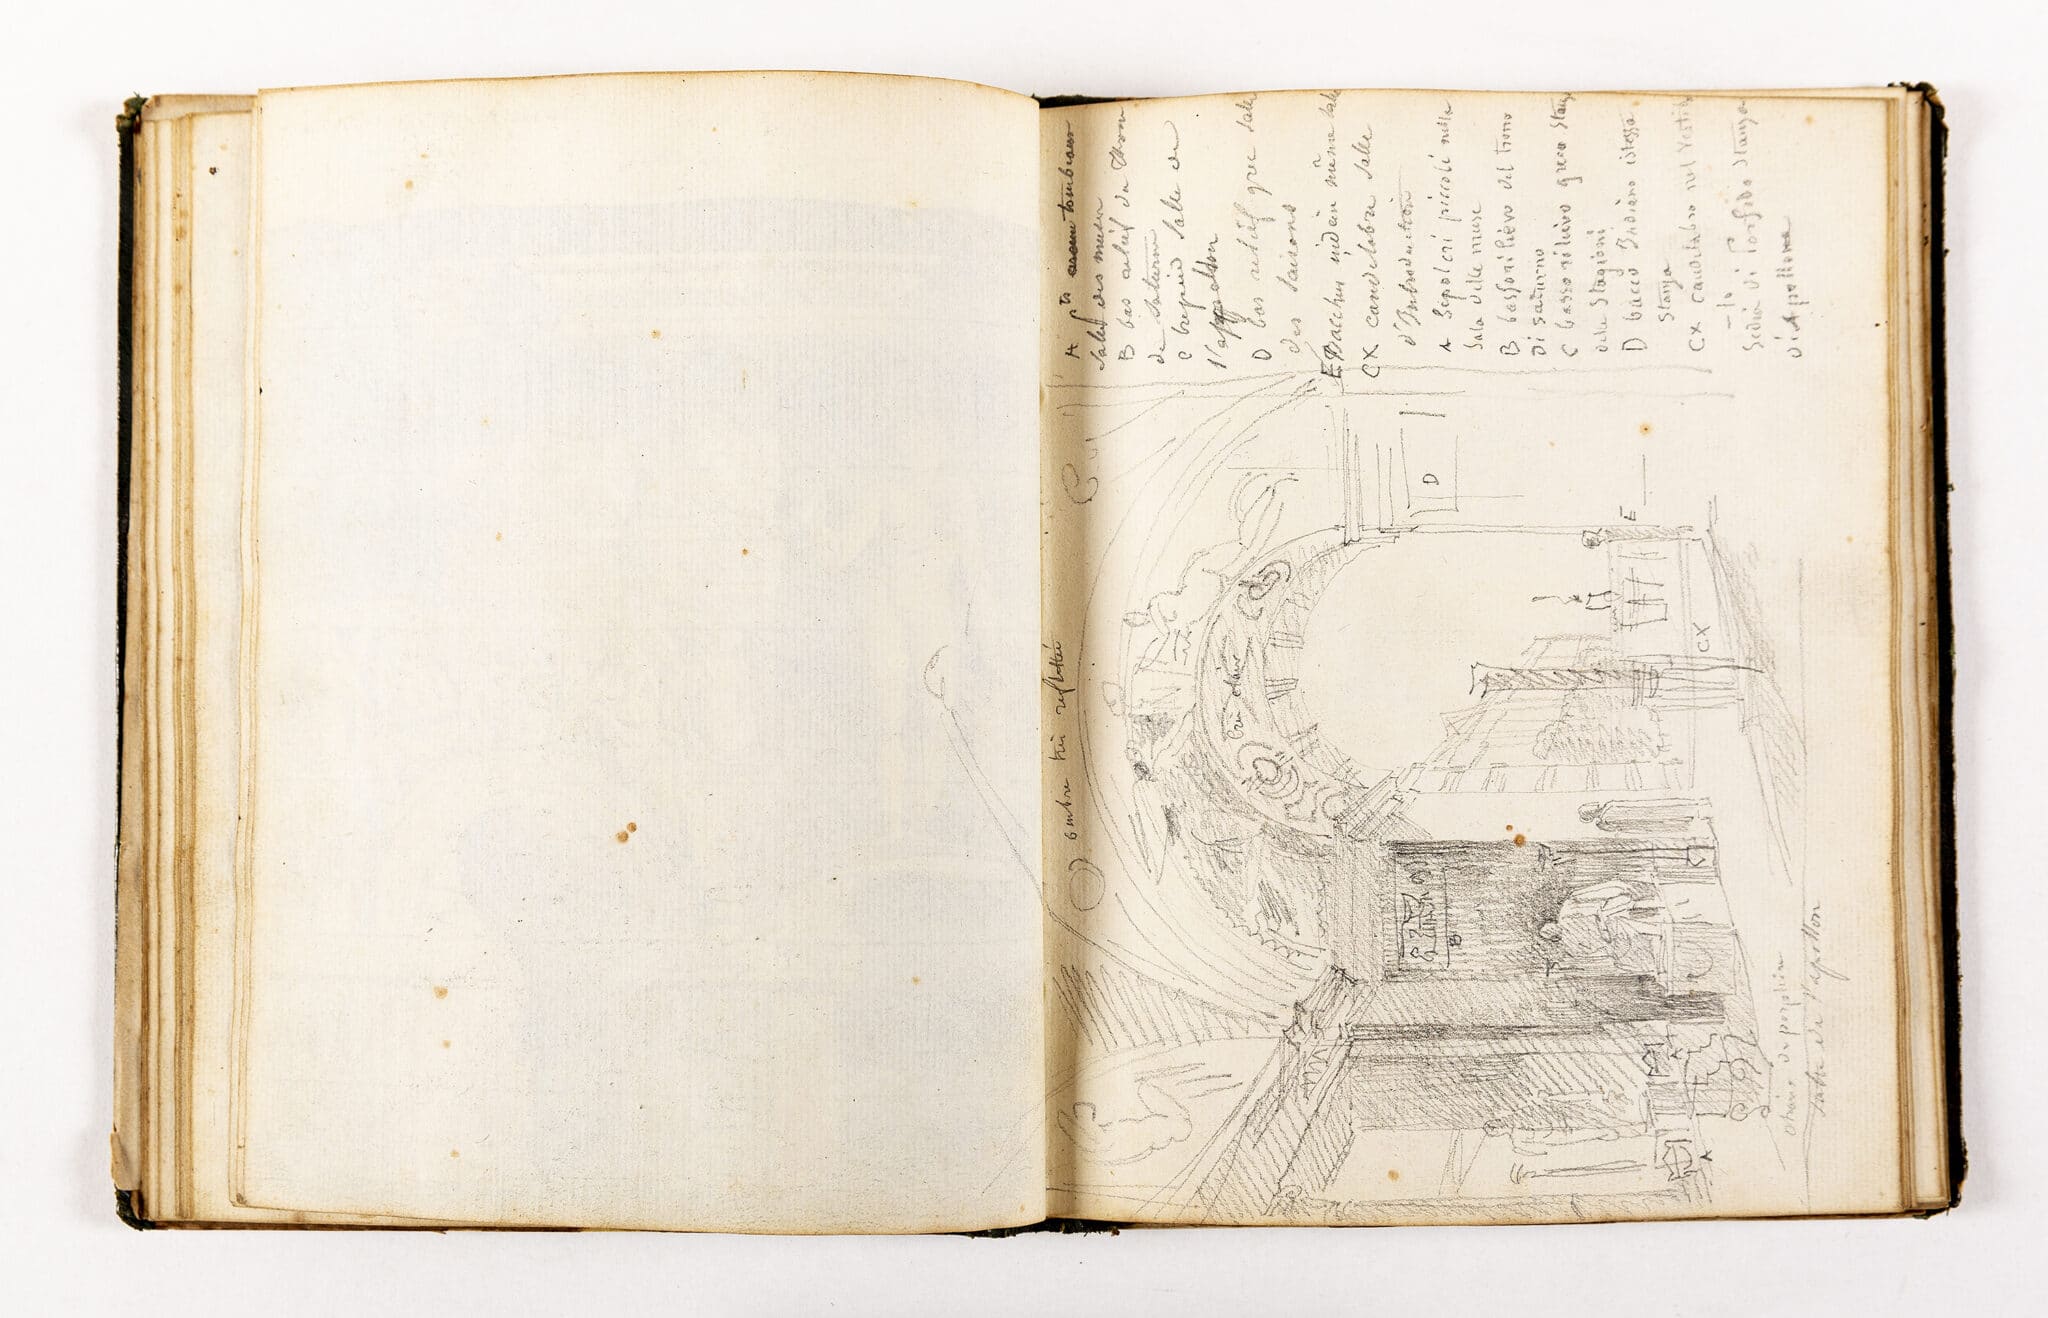 A pts tombeaux
Salle des muses
B bas relief du Throne
de Saturne
C trepied Salle de
l'appollon
D bas relief grec Salle
des Saisons
E Bacchus indien même Salle
CX candelabre Salle
d'Introduction
A Sepolcri piccoli nella
Sala delle muse
B bassorilievo del trono
di Saturno
C bassorilievo greco Stanza
delle Stagioni
D bacco Indiano istessa
Stanza
CX candelabro nel Vestib
-lo
Sedia di Porfido Stanza
d'Appollone
ombre très reflétée
bien claire
D
E
CX
B
C
A
A
chaise de porphire
Salle de l'apollon